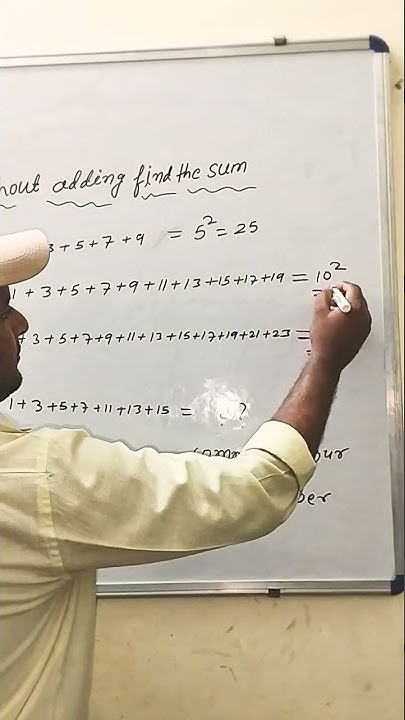 hout adding find the sum
3 + 5 + 7 + 9 = 5² = 25
1 + 3 + 5 + 7 + 9 + 11 + 13 + 15 + 17 + 19 = 10²
+ 3 + 5 + 7 + 9 + 11 + 13 + 15 + 17 + 19 + 21 + 23 =
1 + 3 + 5 + 7 + 11 + 13 + 15 = ?